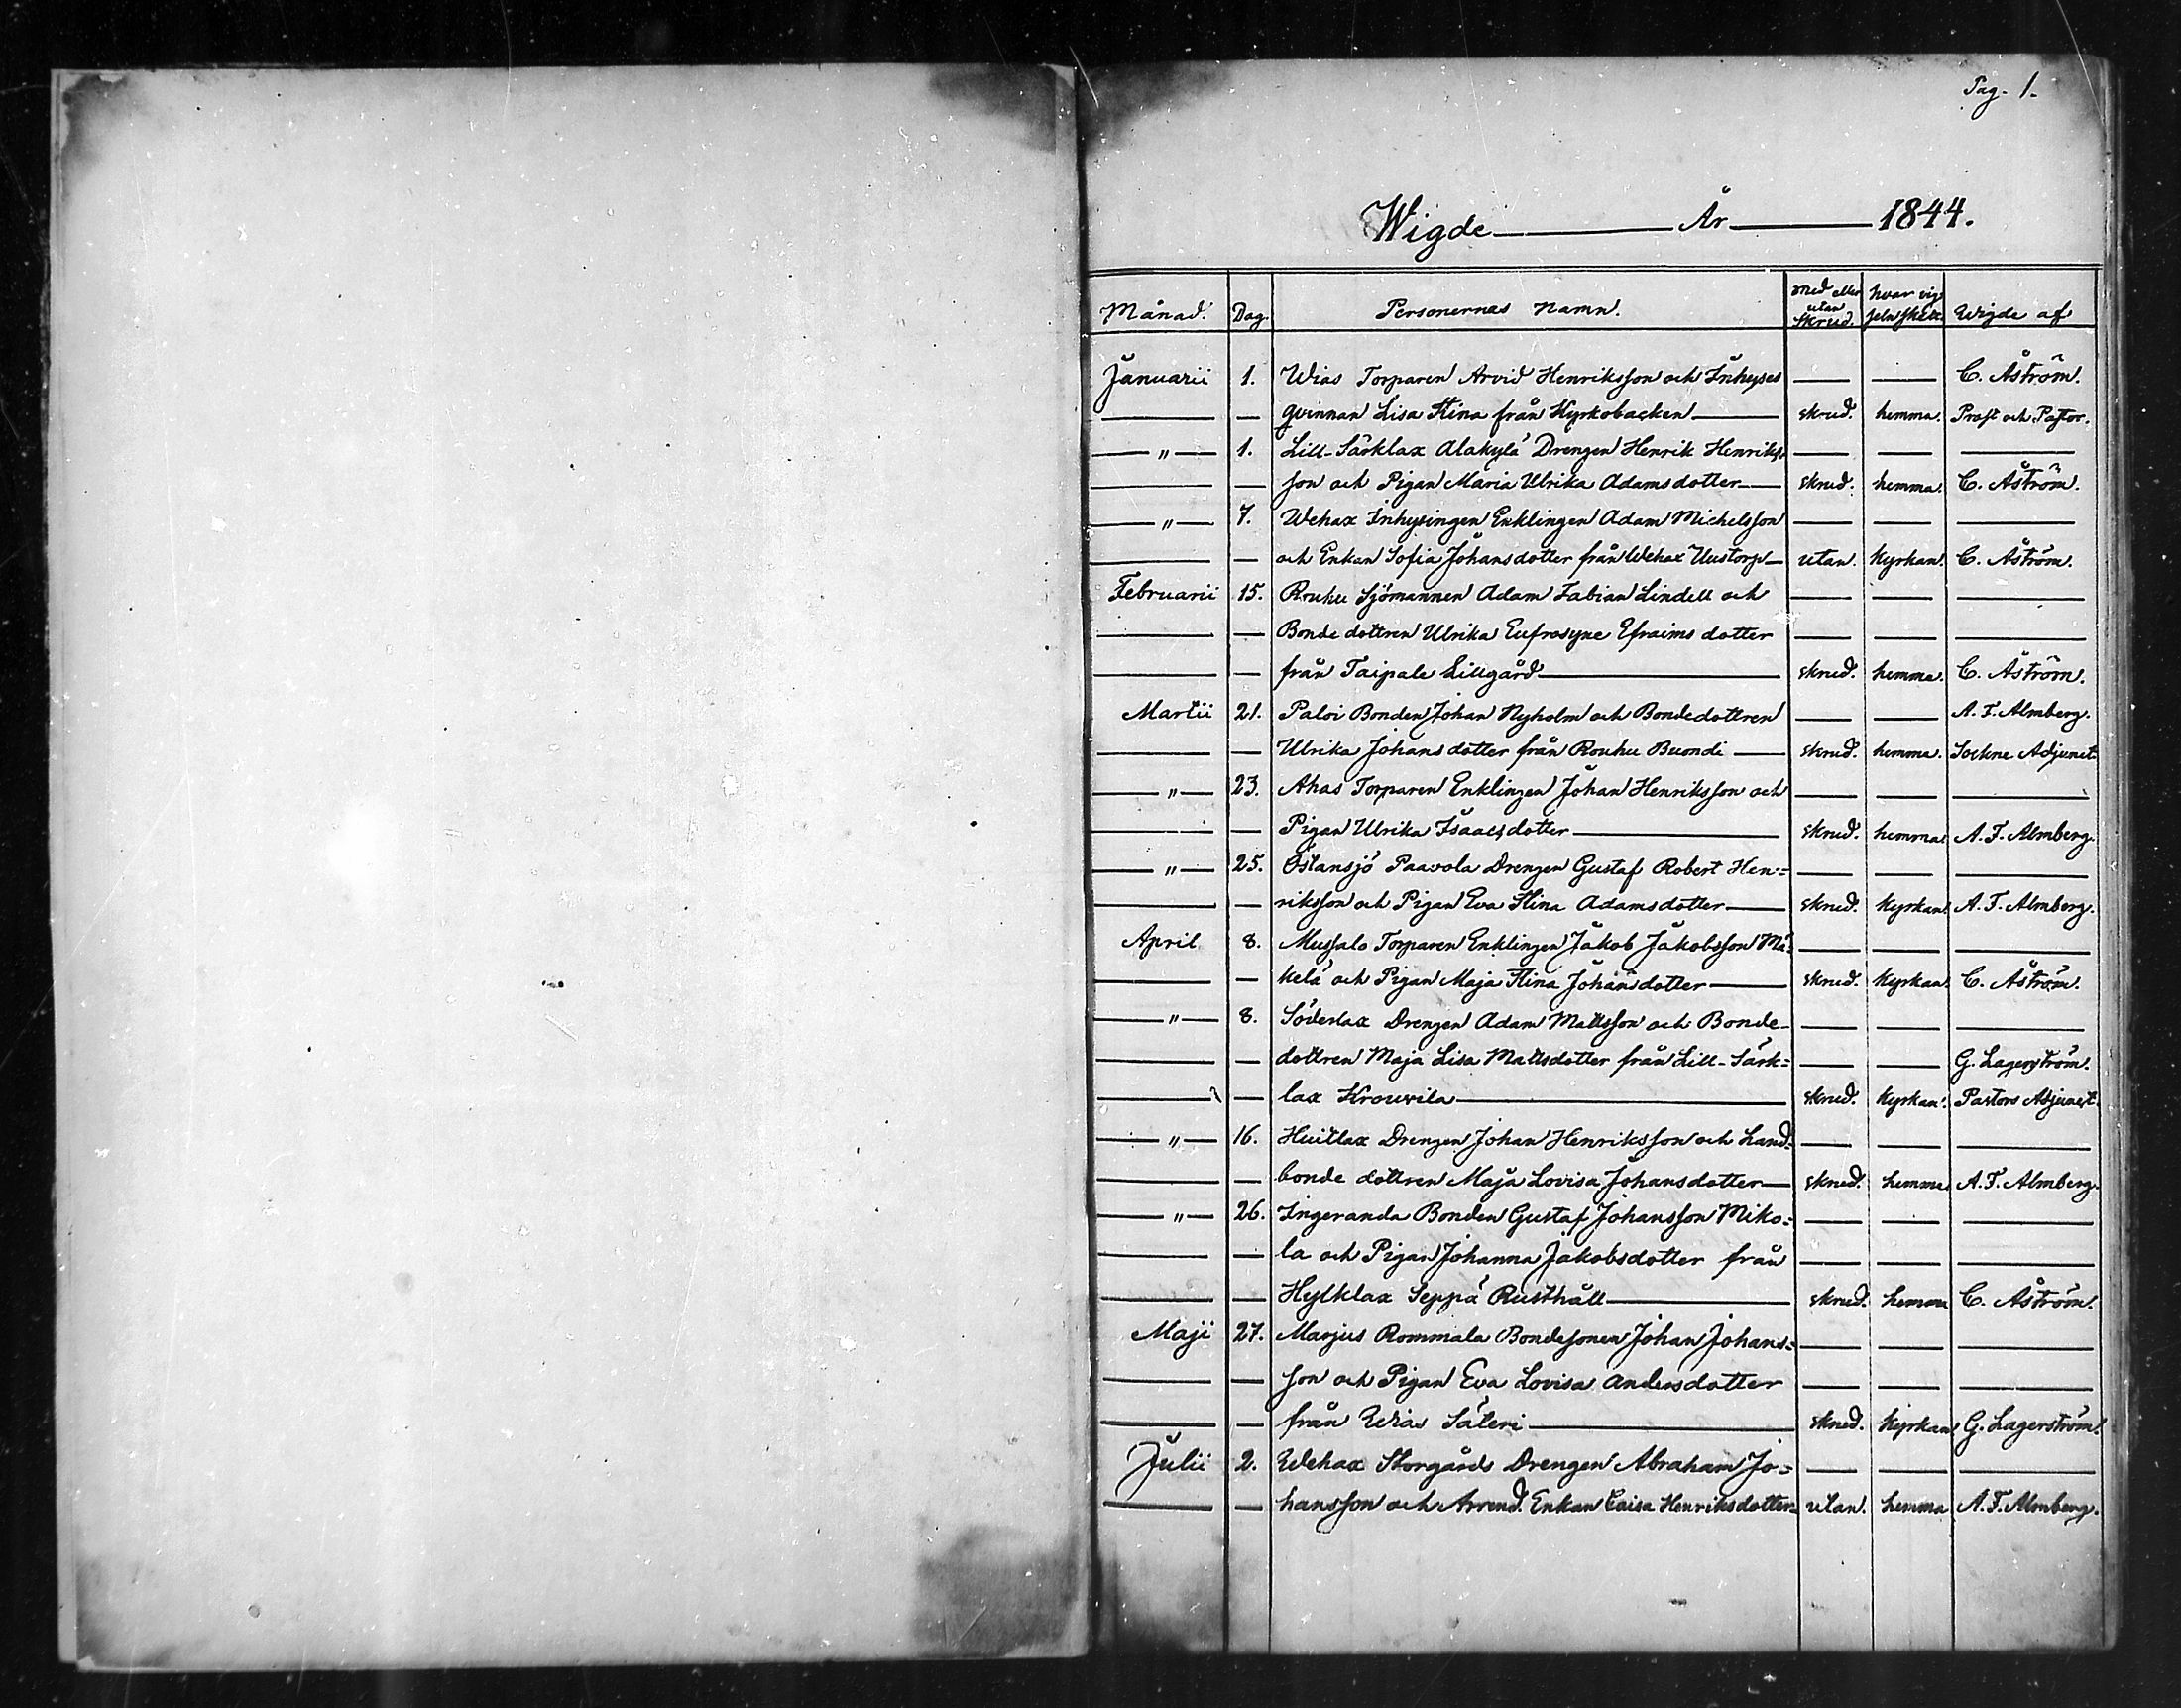 Pag. 1.
Wigde År 1844.
Månad. Dag. Personernas Namn. Med eller utan skrud. hvar vigseln skett. Wigde af
Januarii 1. Wias Torparen Arvid Henriksson och Inhyses — — C. Åström.
— — qvinnan Lisa Stina från Kyrkobacken — skrud. hemma. Prost och Pastor.
— " — 1. Lill-Särklax Alakylä Drengen Henrik Henriks- — — —
— — son och Pigan Maria Ulrika Adamsdotter — skrud. hemma. C. Åström.
— " — 7. Wehax Inhysingen Enklingen Adam Michelsson — — —
— — och Enkan Sofia Johansdotter från Wehax Uustorp — utan. Kyrkan. C. Åström.
Februarii 15. Rouhu Sjömannen Adam Fabian Lindell och — — —
— — Bondedottren Ulrika Eufrosyne Efraimsdotter — — —
— — från Taipale Lillgård — skrud. hemma. C. Åström.
Martii 21. Paloi Bonden Johan Nyholm och Bondedottren — — A. F. Almberg.
— — Ulrika Johansdotter från Rouhu Buondi — skrud. hemma. Sockne Adjunct.
— " — 23. Ahas Torparen Enklingen Johan Henriksson och — — —
— — Pigan Ulrika Isaacsdotter — skrud. hemma. A. F. Almberg.
— " — 25. Östansjö Paavola Drengen Gustaf Robert Hen= — — —
— — riksson och Pigan Eva Stina Adamsdotter — skrud. Kyrkan. A. F. Almberg.
April 8. Mussalo Torparen Enklingen Jakob Jakobsson Mä= — — —
— — kelä och Pigan Maja Stina Johansdotter — skrud. Kyrkan. C. Åström.
— " — 8. Söderlax Drengen Adam Mattsson och Bonde- — — —
— — dottren Maja Lisa Mattsdotter från Lill-Särk= — — G. Lagerström.
— — lax Krouvila — skrud. Kyrkan. Pastors Adjunct.
— " — 16. Huitlax Drengen Johan Henriksson och Land= — — —
— — bonde dottren Maja Lovisa Johansdotter — skrud. hemma. A. F. Almberg.
— " — 26. Ingeranda Bonden Gustaf Johansson Miko= — — —
— — la och Pigan Johanna Jakobsdotter från — — —
— — Hylklax Seppä Rusthåll — skrud. hemma C. Åström.
Maji 27. Marjus Rommala Bondesonen Johan Johans= — — —
— — son och Pigan Eva Lovisa Andersdotter — — —
— — från Wias Säteri — skrud. Kyrkan G. Lagerström.
Julii 2. Wehax Storgårds Drengen Abraham Jo= — — —
— — hansson och Arrend. Enkan Caisa Henriksdotter — utan. hemma A. F. Almberg.